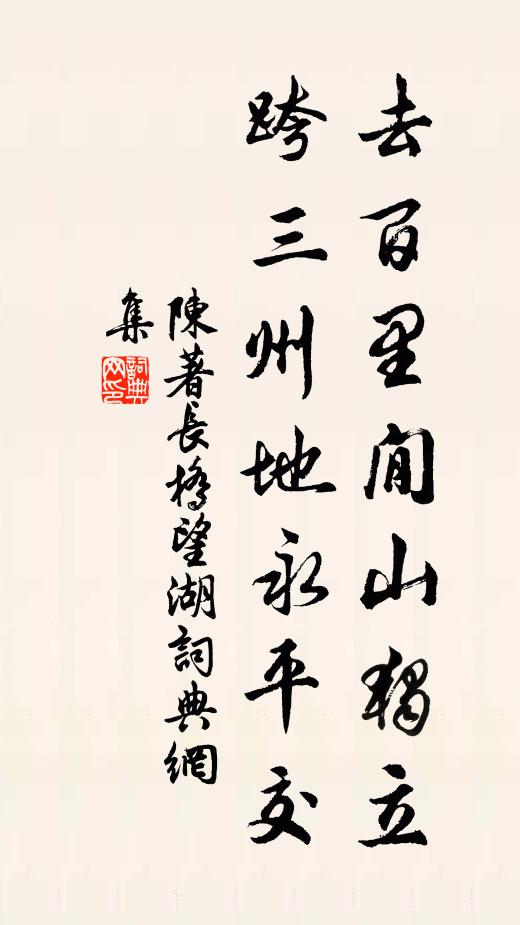 去百里間山獨立
跨三州地永平交
陳著長橋望湖詞典網
集
詞典
网印